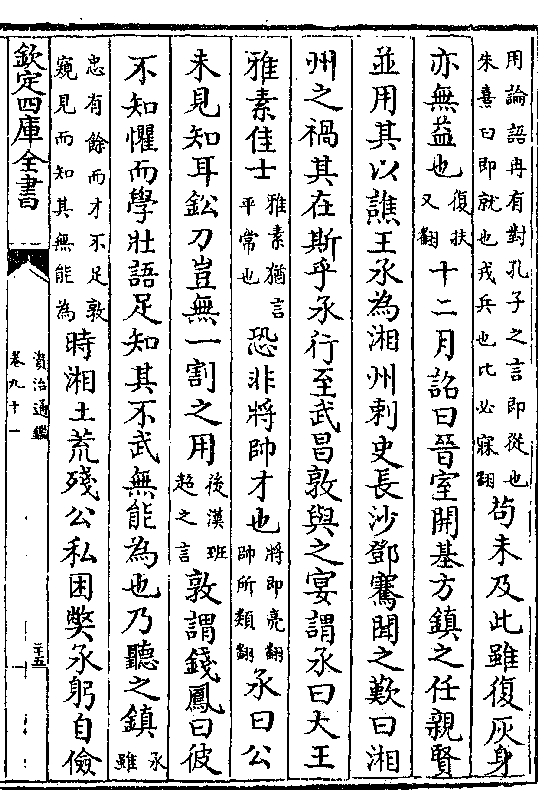 用論語冉有對孔子之言即從也朱熹曰即就也戎兵也比必寐翻苟未及此雖復灰身
亦無益也復扶又翻十二月詔曰晉室開基方鎮之任親賢
並用其以譙王承為湘州刺史長沙鄧騫聞之歎曰湘
州之禍其在斯乎承行至武昌敦與之宴謂承曰大王
雅素佳士雅素猶言平常也恐非將帥才也將即亮翻帥所類翻承曰公
未見知耳鉛刀豈無一割之用後漢班超之言敦謂錢鳳曰彼
不知懼而學壯語足知其不武無能為也乃聽之鎮承雖
忠有餘而才不足敦窺見而知其無能為時湘土荒殘公私困弊承躬自儉
欽定四庫全書
資治通鑑
卷九十一
二十五